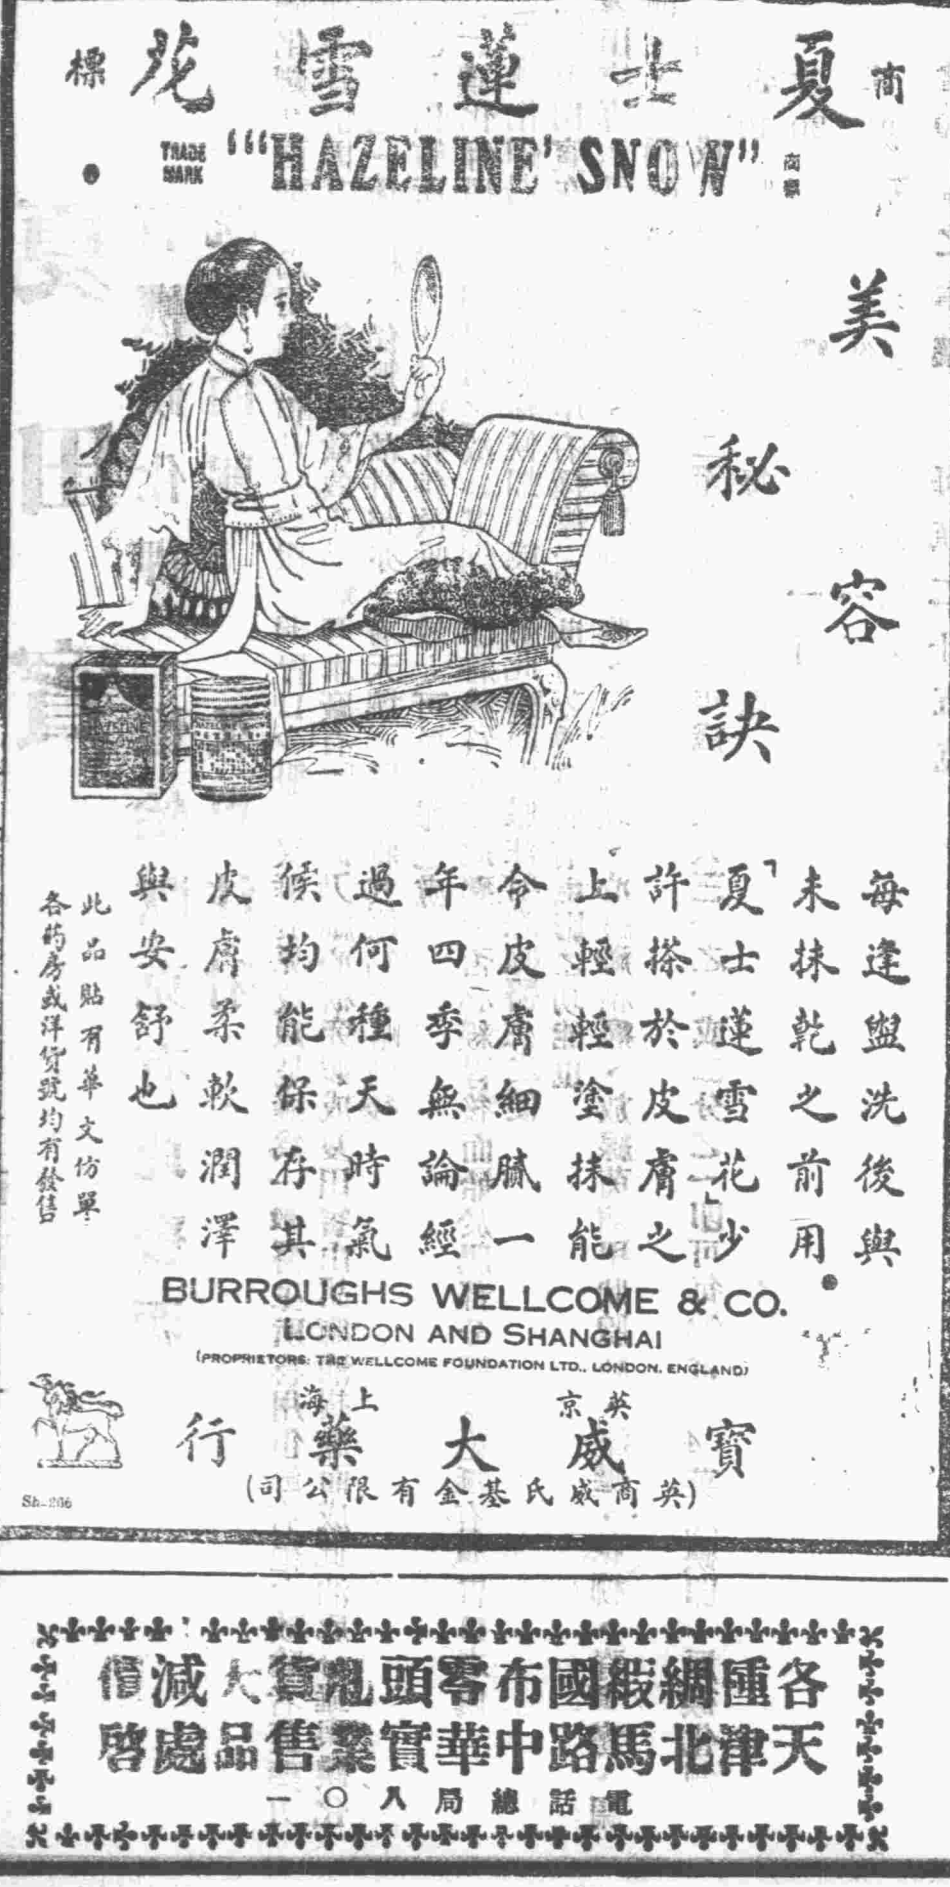 商標
夏士蓮雪花
TRADE MARK "'HAZELINE' SNOW"
美容
秘訣
HAZELINE SNOW
每逢盥洗後與
未抹乾之前用
「夏士蓮雪花」少
許搽於皮膚之
上輕輕塗抹能
令皮膚細膩一
年四季無論經
過何種天時氣
候均能保存其
皮膚柔軟潤澤
與安舒也
此品貼有華文仿單
各葯房或洋貨號均有發售
BURROUGHS WELLCOME & CO.
LONDON AND SHANGHAI
(PROPRIETORS: THE WELLCOME FOUNDATION LTD., LONDON, ENGLAND)
英京 上海
寶威大藥行
(英商威氏基金有限公司)
Sh-266
各種綢緞國布零頭 貨大減價
天津北馬路中華實業售品處啓
電話總局八〇一